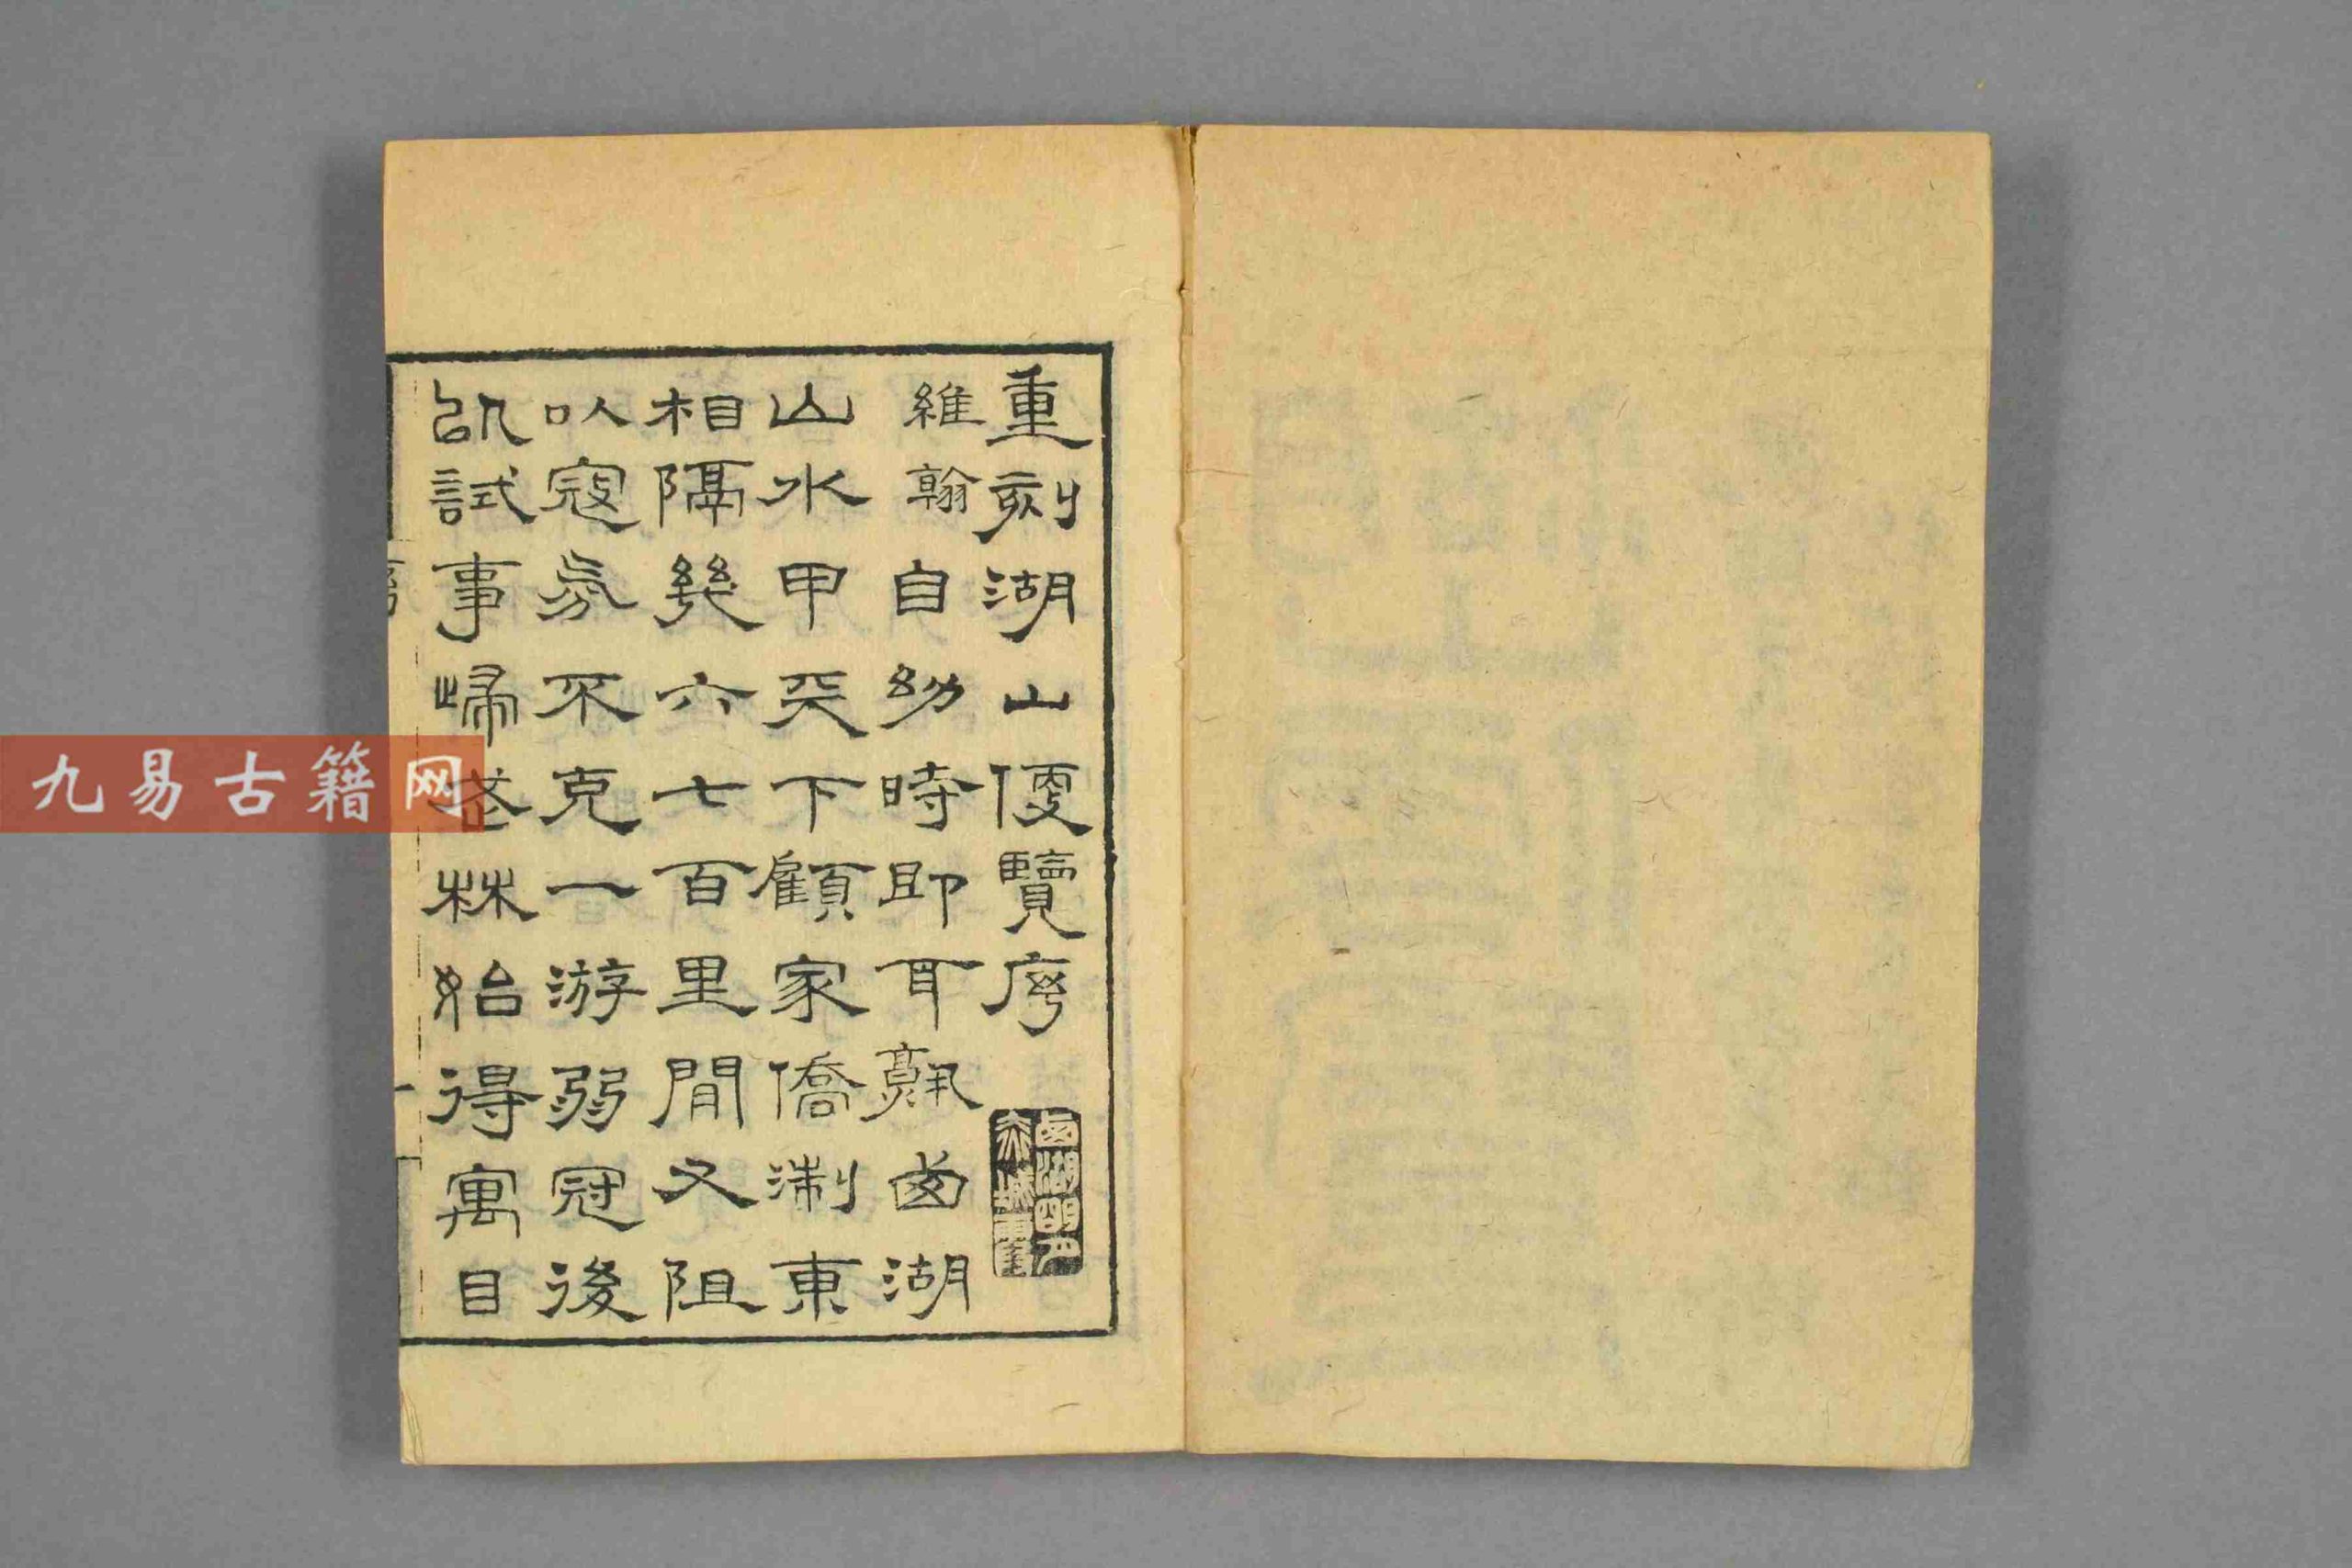 重刻湖山便覽序
西湖明月
赤城霞
維翰自幼時即耳熟西湖
山水甲天下顧家僑淛東
相隔幾六七百里閒又阻
以寇氛不克一游弱冠後
試事歸林始得寓目
一
九易古籍网